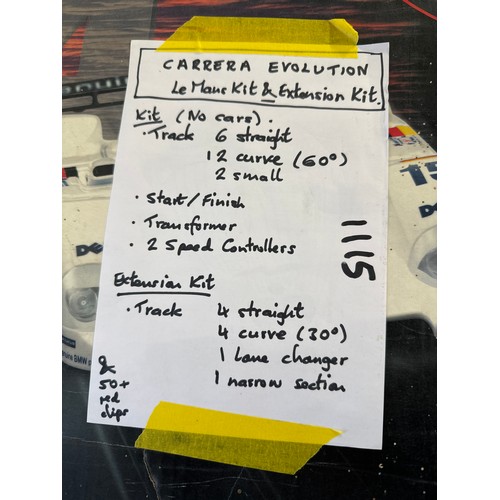 CARRERA EVOLUTION
Le Mans Kit & Extension Kit.
Kit (No cars).
· Track 6 straight
12 curve (60°)
2 small
· Start/Finish
· Transformer
· 2 Speed Controllers
1115
Extension Kit
· Track 4 straight
4 curve (30°)
1 lane changer
1 narrow section
&
50+
red
clips